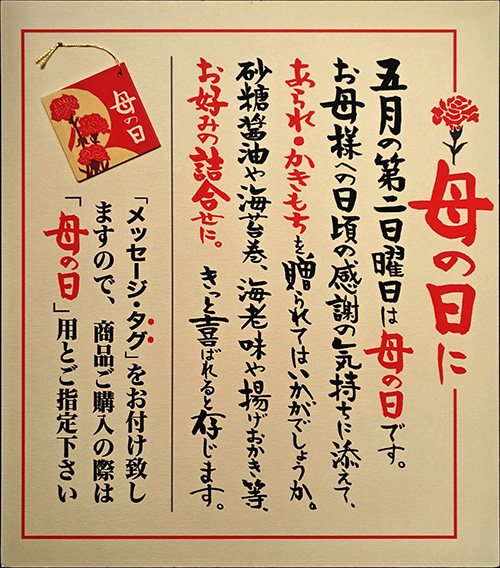 母の日に
五月の第二日曜日は母の日です。
お母様への日頃の感謝の気持ちに添えて、
あられ・かきもちを贈られてはいかがでしょうか。
砂糖醤油や海苔巻、海老味や揚げおかき等、
お好みの詰合せに。きっと喜ばれると存じます。
母の日
「メッセージ・タグ」をお付け致し
ますので、商品ご購入の際は
「母の日」用とご指定下さい